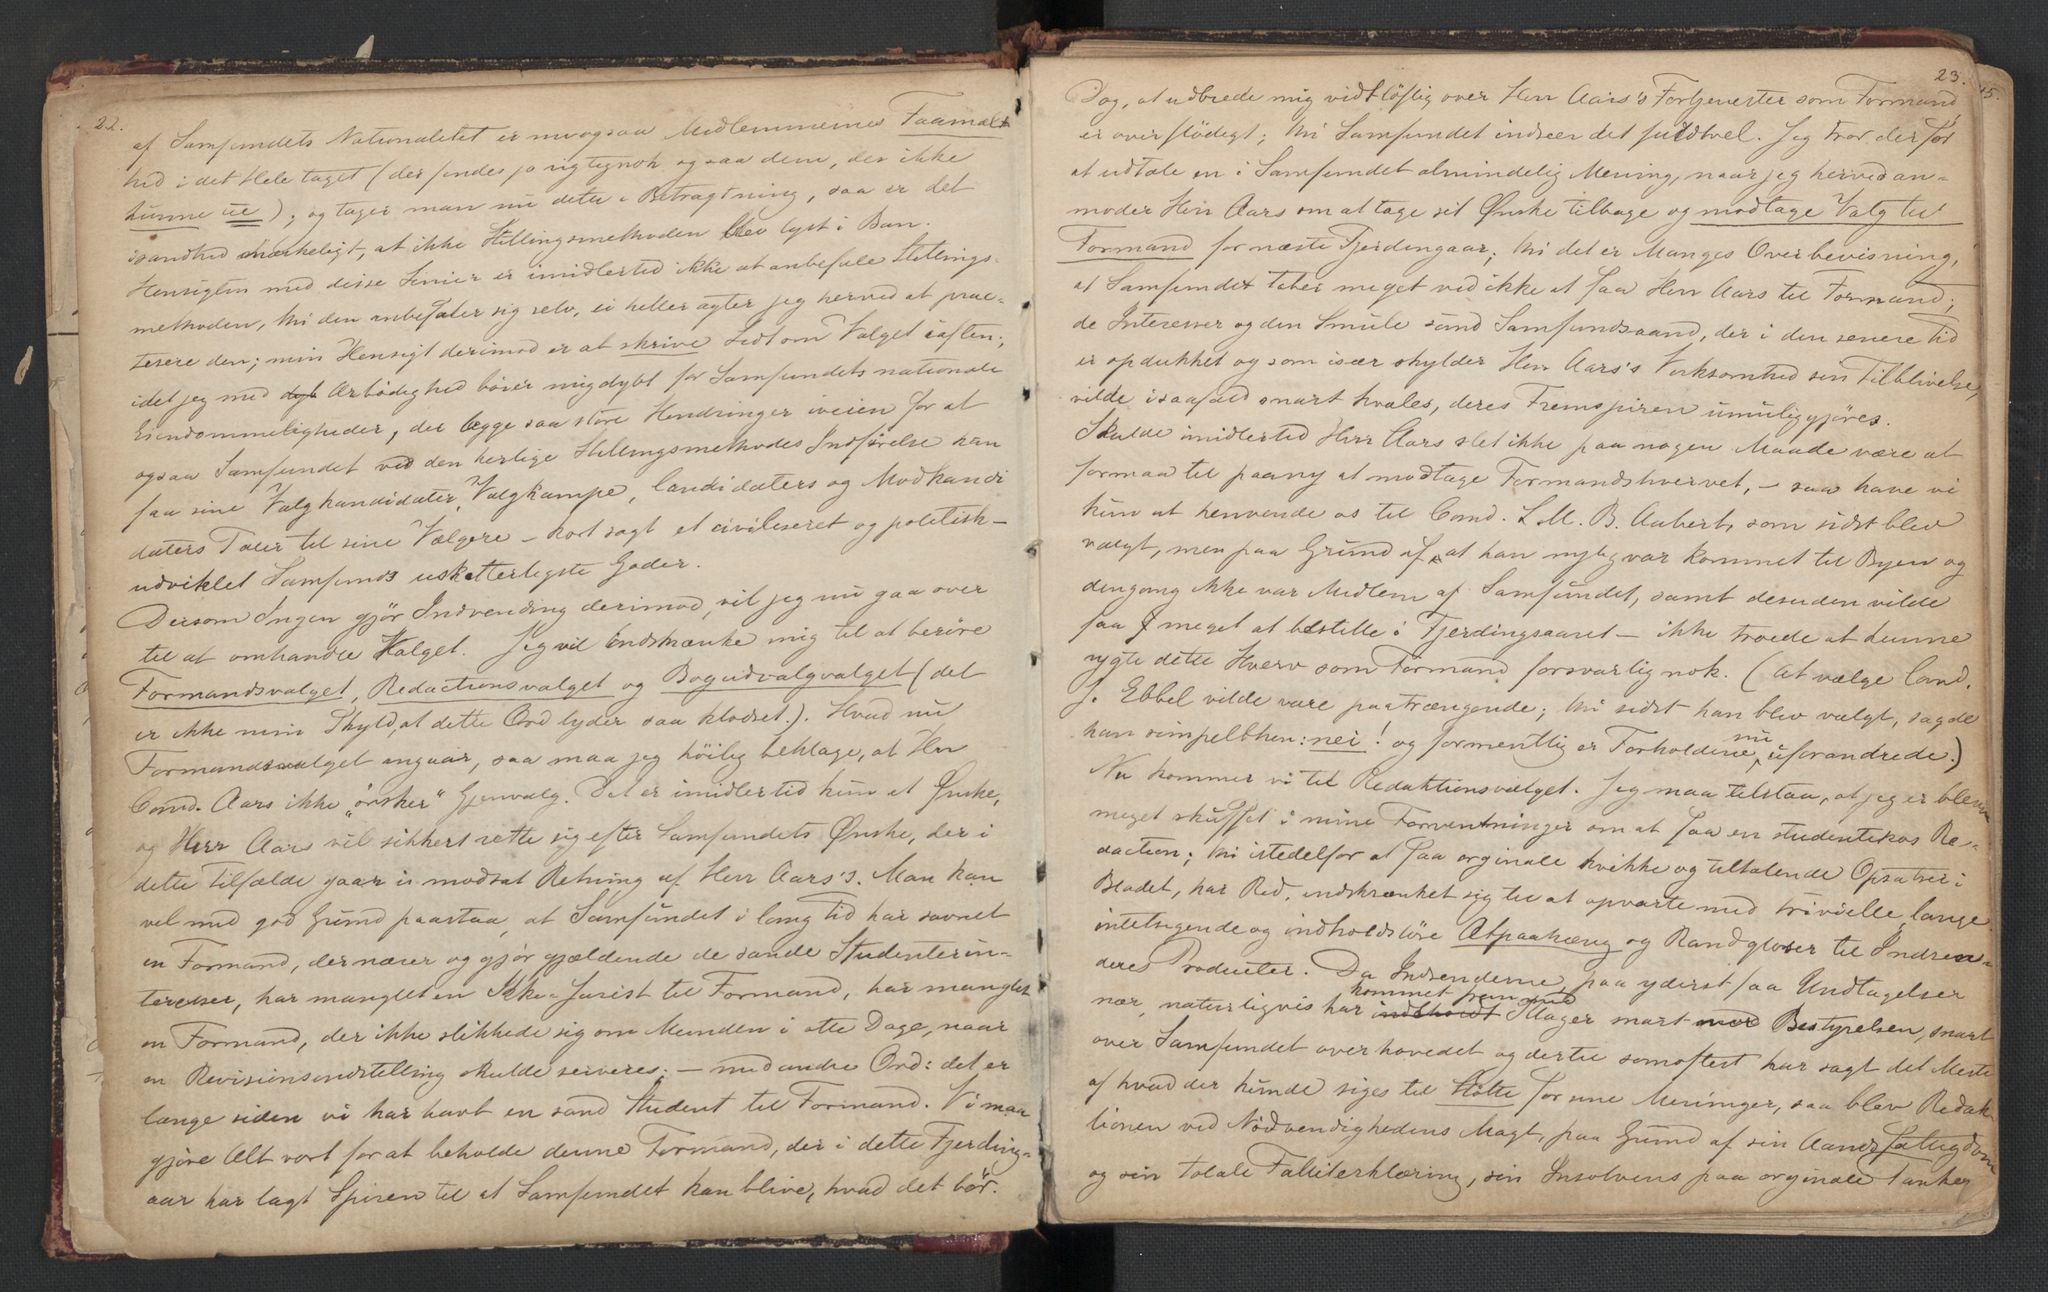 22.
af Samfundets Nationalitet er nu ogsaa Medlemmernes Faamælt-
hed i det Hele taget (der findes jo rigtignok ogsaa dem, der ikke
kunne tie); og tager man nu dette i Betragtning, saa er det
isandhed mærkeligt, at ikke Stillingsmethoden blev lyst i Ban.
Hensigten med disse Linier er imidlertid ikke at anbefale Stillings-
methoden, thi den anbefaler sig selv, ei heller agter jeg herved at prac-
tesere den; min Hensigt derimod er at skrive lidt om Valget iaften;
idet jeg med dyb Ærbødighed böier mig dybt for Samfundets nationale
Eiendommeligheder, der lægge saa store Hindringer iveien for at
ogsaa Samfundet ved den herlige Stillingsmethodes Indførelse kan
faa sine Valgkandidater, Valgkampe, Candidaters og Modkandi
daters Taler til sine Vælgere – kort sagt et civiliseret og politisk-
udviklet Samfunds uskatterligste Goder.
Dersom Ingen gjør Indvending derimod, vil jeg nu gaa over
til at omhandle Valget. Jeg vil indskrænke mig til at beröre
Formandsvalget, Redactionsvalget og Bogudvalgvalget (det
er ikke min Skyld, at dette Ord lyder saa klodset.). Hvad nu
Formandsvalget angaar, saa maa jeg höilig beklage, at Hr
Cand. Aars ikke "önsker" Gjenvalg. Det er imidlertid kun et Ønske,
og Herr Aars vil sikkert rette sig efter Samfundets Ønske, der i
dette Tilfælde gaar i modsat Retning af Herr Aars's. Man kan
vel med god Grund paastaa, at Samfundet i lang Tid har savnet
en Formand, der nærer og gjör gjældende de sande Studenterin-
teresser, har manglet en Ikke-Jurist til Formand, har manglet
en Formand, der ikke slikkede sig om Munden i otte Dage, naar
en Revisionsindstilling skulde serveres; – med andre Ord: det er
længe siden vi har havt en sand Student til Formand. Vi maa
gjöre Alt vort for at beholde denne Formand, der i dette Fjerding-
aar har lagt Spiren til at Samfundet kan blive, hvad det bör.
23.
15.
Dog, at udbrede mig vidtlöftig over Herr Aars's Fortjenester som Formand,
er overflödigt; thi Samfundet indseer det fuldtvel. Jeg tror derfor
at udtale en i Samfundet almindelig Mening, naar jeg herved an-
moder Herr Aars om at tage sit Ønske tilbage og modtage Valg til
Formand for næste Fjerdingaar; thi det er Manges Overbevisning,
at Samfundet taber meget ved ikke at faa Herr Aars til Formand;
de Interesser og den Smule sund Samfundsaand, der i den senere Tid
er opdukket og som især skylder Herr Aars's Virksomhed sin Tilblivelse,
vilde isaafald snart kvæles, deres Fremspiren umuliggjöres.
Skulde imidlertid Herr Aars slet ikke paa nogen Maade være at
formaa til paany at modtage Formandshvervet, – saa have vi
kun at henvende os til Cand. L. M. B. Aubert, som sidst blev
valgt, men paa Grund af, at han nylig var kommet til Byen og
dengang ikke var Medlem af Samfundet, samt desuden vilde
faa meget at bestille i Fjerdingaaret – ikke troede at kunne
rygte dette Hverv som Formand forsvarlig nok. (At vælge Cand.
J. Ebbel vilde være paatrængende; thi sidst han blev valgt, sagde
han simpelthen: nei! og formentlig er Forholdene nu uforandrede.)
Nu kommer vi til Redaktionsvalget. Jeg maa tilstaa, at jeg er bleven
meget skuffet i mine Forventninger om at faa en studentikos Re-
daction; thi istedetfor at faa orginale kvikke og tiltalende Opsatser i
Bladet, har Red. indskrænket sig til at opvarte med trivielle, lange
intetsigende og indholdslöse Atpaahæng og Randgloser til Indsen-
deres Producter. Da Indsenderne, paa yderst faa Undtagelser
nær, naturligvis har indeholdt kommet frem med Klager snart over Bestyrelsen, snart
over Samfundet overhovedet og dertil somoftest har sagt det Meste
af hvad der kunde siges til Stötte for sine Meninger, saa blev Redak-
tionen ved Nödvendighedens Magt, paa Grund af sin Aandsfattigdom
og sin totale Fallit erklæring, sin Insolvens paa orginale Tanker